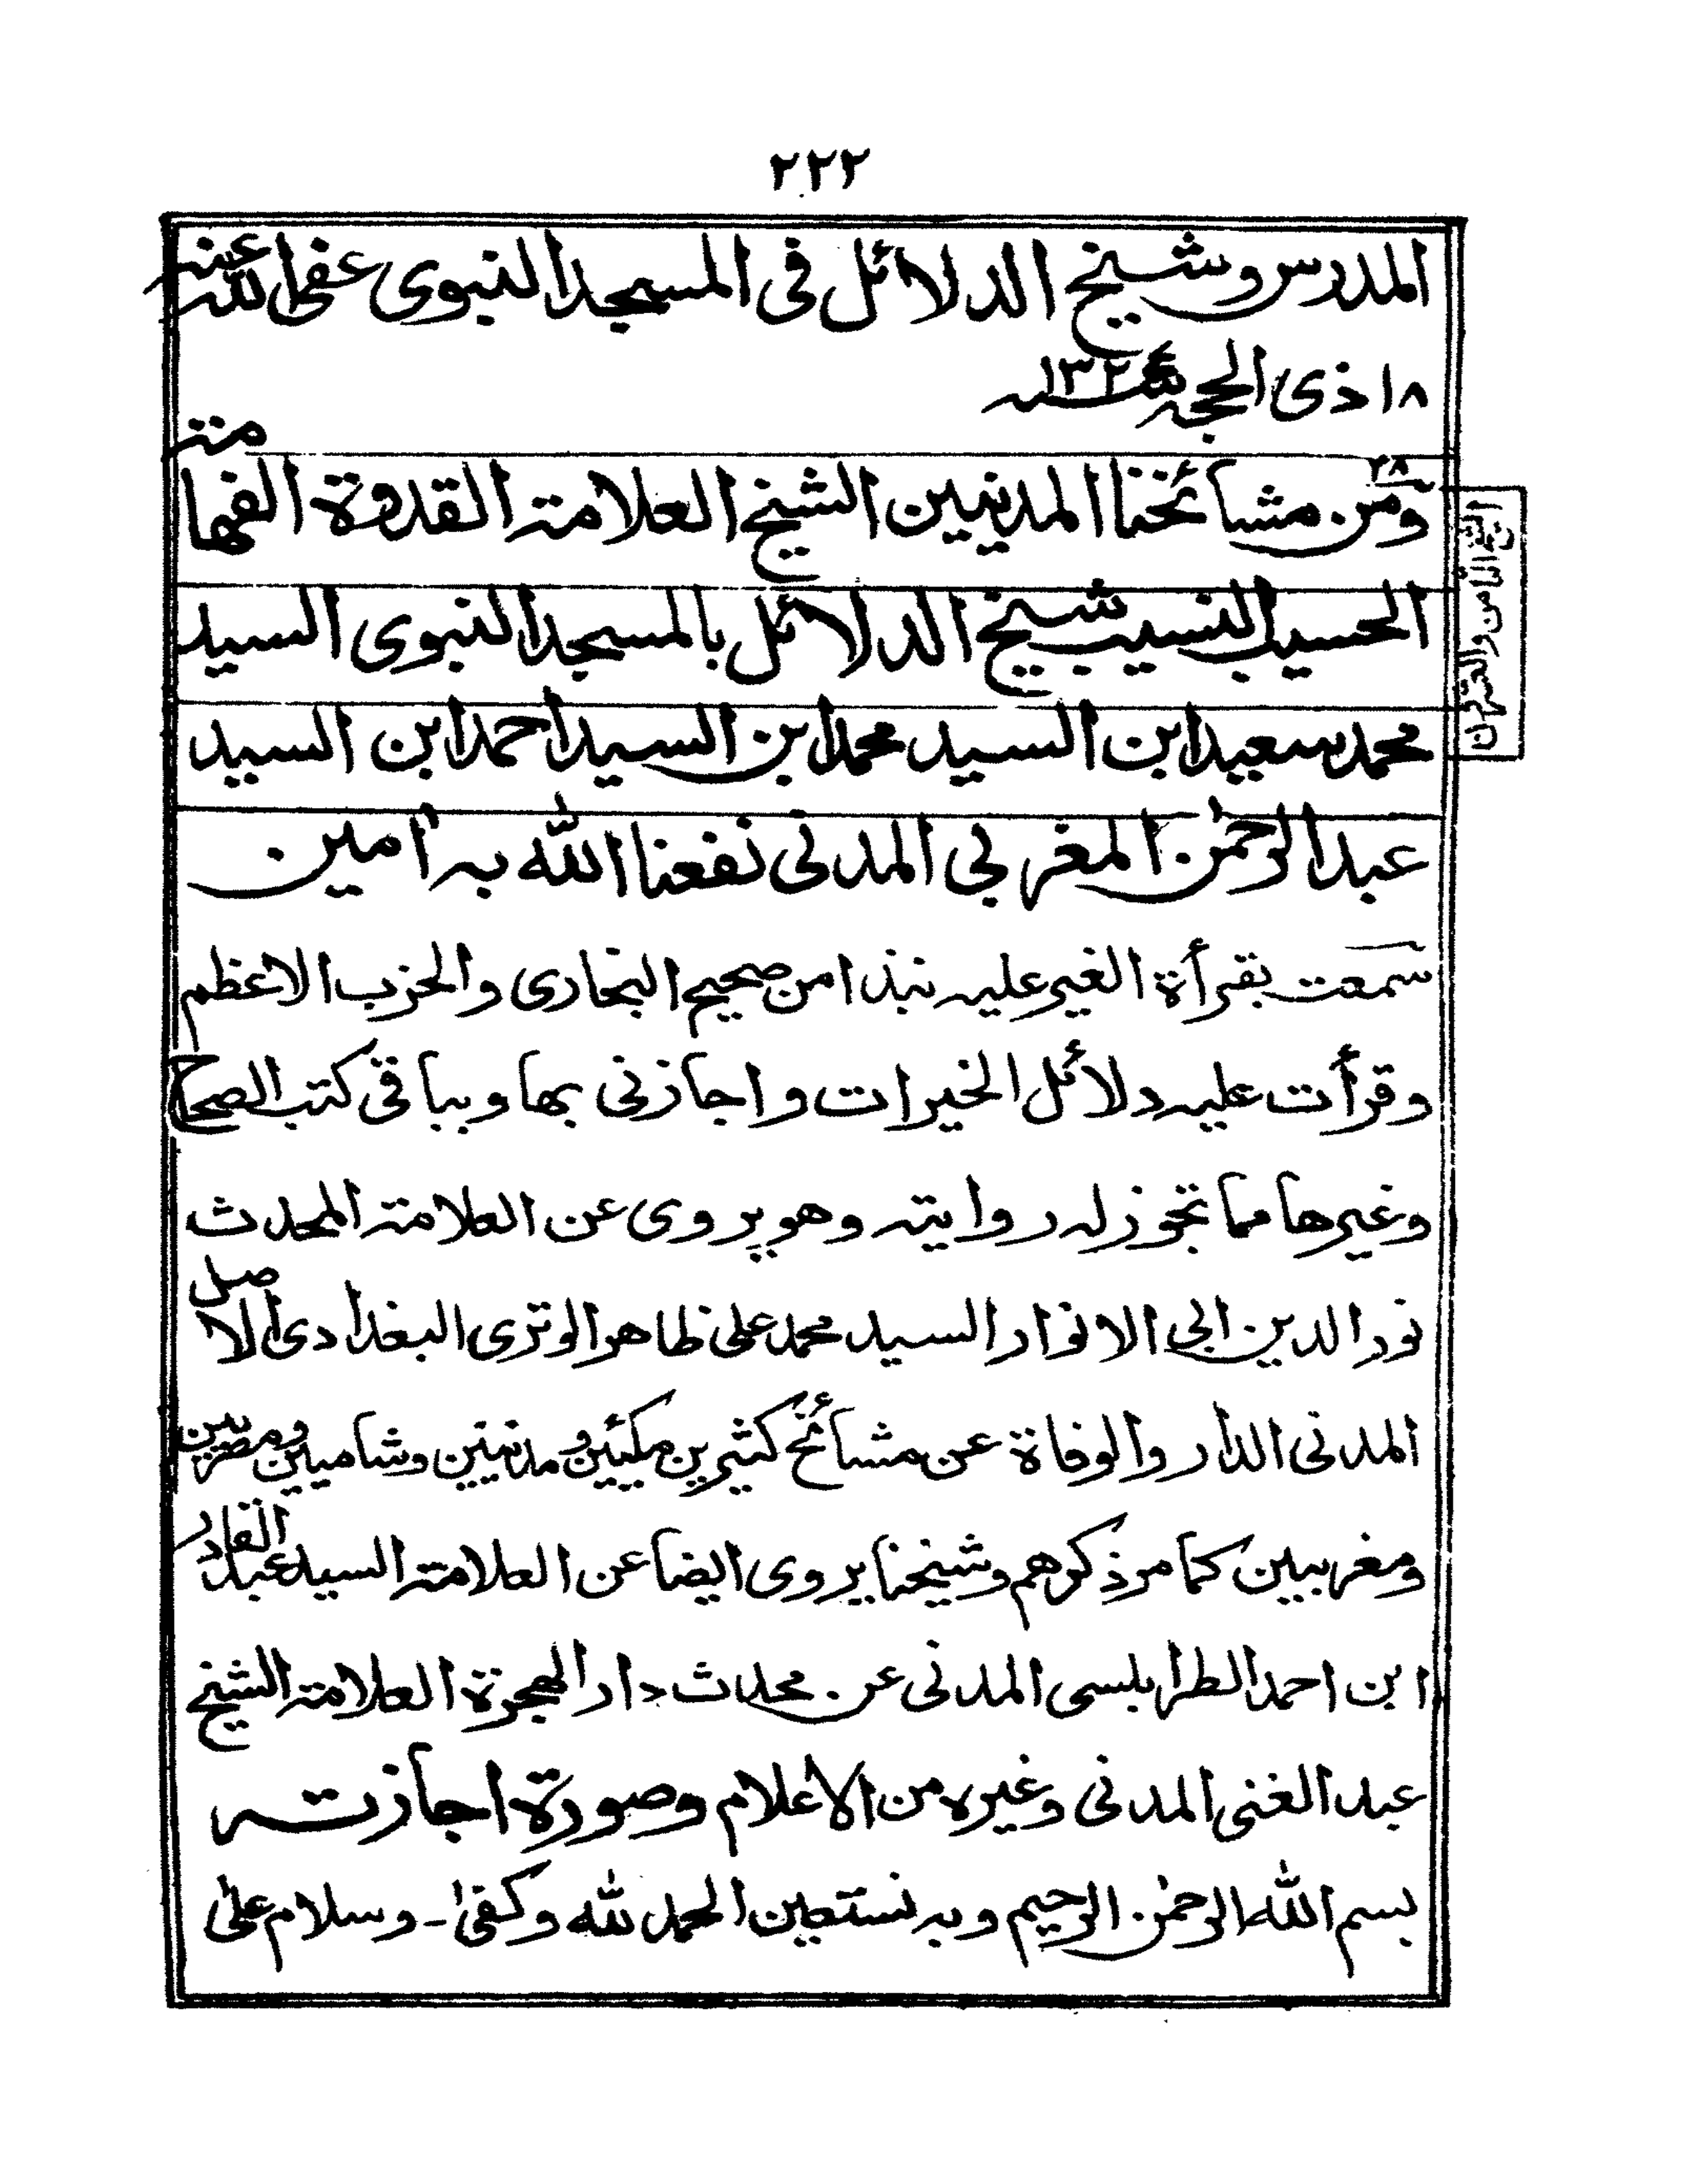 ٢٢٢
المدرس وشيخ الدلائل فى المسجد النبوى عفى الله عنه
١٨ ذى الحجه سنة ١٣٢٤
٢٨
ومن مشائخنا المدنيين الشيخ العلامة القدوة الفهامة
الشيخ الثامن والعشرون
الحسيب النسيب شيخ الدلائل بالمسجد النبوى السيد
محمد سعيد ابن السيد محمد ابن السيد احمد ابن السيد
عبد الرحمٰن المغربى المدنى نفعنا الله به اٰمين
سمعت بقرأة الغير عليه نبذا من صحيح البخارى والحزب الاعظم
وقرأت عليه دلائل الخيرات واجازنى بها وبباقى كتب الصحاح
وغيرها مما تجوز له روايته وهو يروى عن العلامة المحدث
نور الدين ابى الانوار السيد محمد على ظاهر الوترى البغدادى الاصل
المدنى الدار والوفاة عن مشائخ كثيرين مكيين ومدنيين وشاميين ومصريين
ومغربيين كما مر ذكرهم وشيخنا يروى ايضا عن العلامة السيد عبد القادر
ابن احمد الطرابلسى المدنى عن محدث دار الهجرة العلامة الشيخ
عبد الغنى المدنى وغيره من الاعلام وصورة اجازته
بسم الله الرحمٰن الرحيم وبه نستعين الحمد لله وكفىٰ - وسلام علىٰ